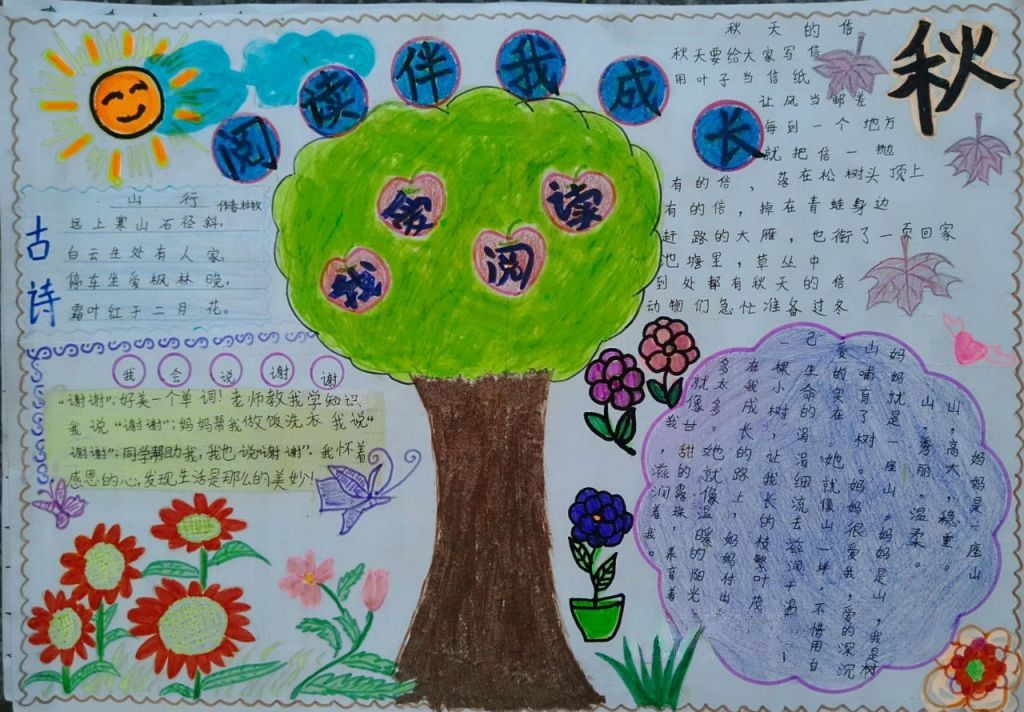 阅读伴我成长
秋
我爱阅读
古诗
山行
作者杜牧
远上寒山石径斜，
白云生处有人家。
停车坐爱枫林晚，
霜叶红于二月花。
我会说谢谢
“谢谢”，好美一个单词！老师教我学知识
我说“谢谢”；妈妈帮我做饭洗衣我说“
谢谢”；同学帮助我，我也说“谢谢”。我怀着
感恩的心，发现生活是那么的美妙！
秋天的信
秋天要给大家写信
用叶子当信纸
让风当邮差
每到一个地方
就把信一抛
有的信，落在松树头顶上
有的信，掉在青蛙身边
赶路的大雁，也衔了一页回家
池塘里，草丛中
到处都有秋天的信
动物们急忙准备过冬
妈妈是一座山
山，高大，稳重。
山，秀丽。温柔。
妈妈就是一座山。妈妈是山，我是树
山哺育了树。妈妈很爱我，爱的深沉
爱的实在。她就像山一样，不惜用自
己生命的涓涓细流去滋润干渴
一棵小树，让我长的枝繁叶茂
在我成长的路上，妈妈付出
多太多。她就像温暖的阳光
就像甘甜的露珠，养育着
我，滋润着我。